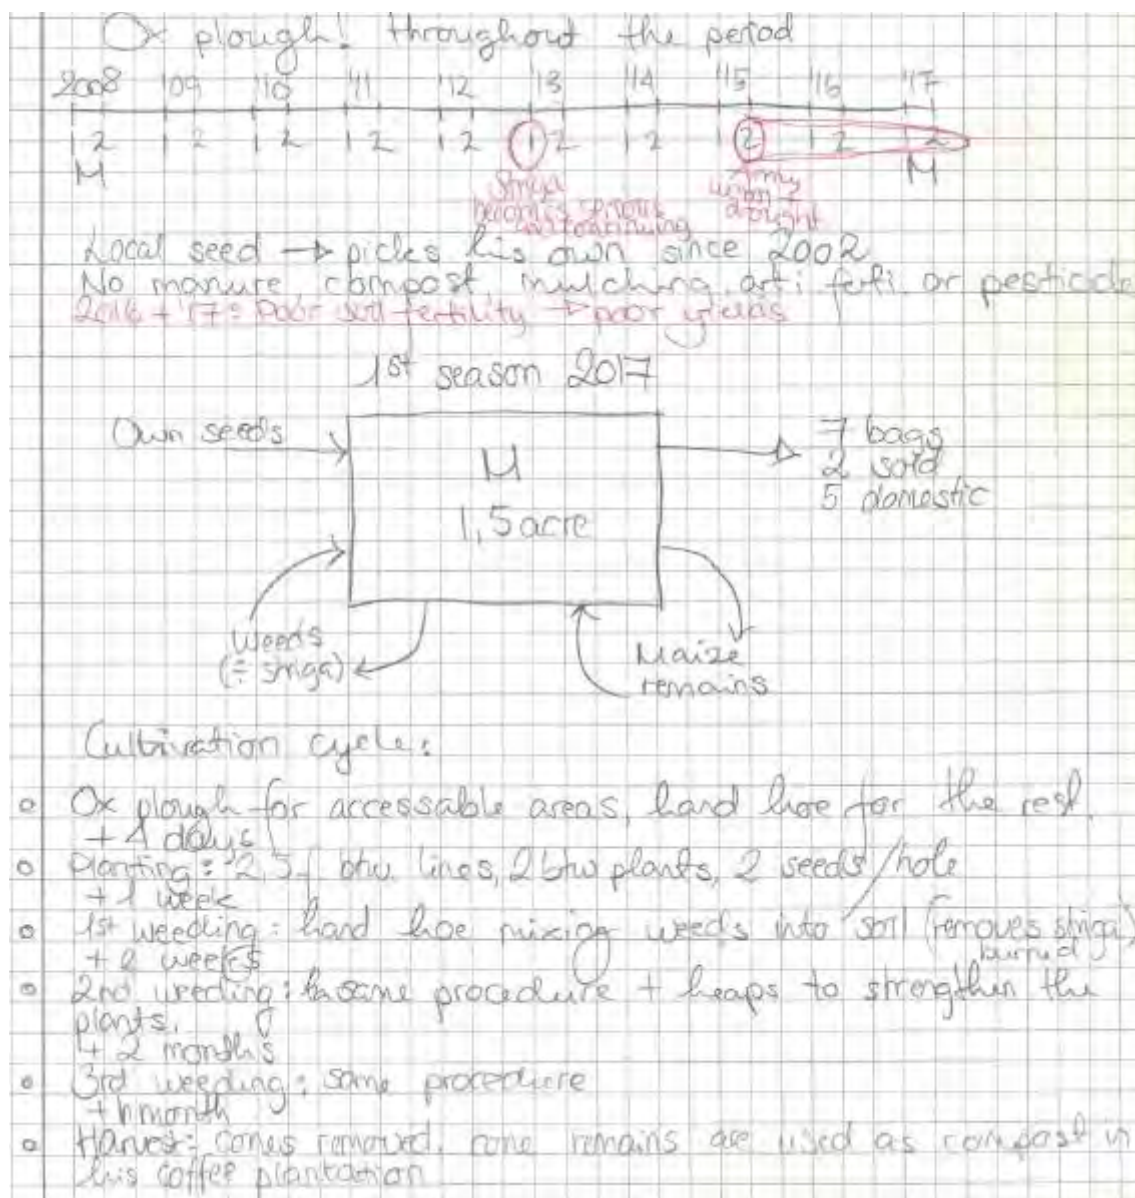 Ox plough! throughout the period
2008 '09 '10 '11 '12 '13 '14 '15 '16 '17
1 2 1 2 1 2 1 2 1 2 1 2 1 2 2 1 2 1 2
M M
Striga becomes serious
Army worm drought
Local seed → picks his own since 2002
No manure compost mulching arti ferti or pesticide
2016 + 17: Poor soil fertility → poor yields
1st season 2017
Own seeds
M
1,5 acre
7 bags
2 sold
5 domestic
Weeds
(÷ striga)
Maize
remains
Cultivation cycle:
Ox plough for accessable areas, hand hoe for the rest.
days
Planting: 2,5 f btw. lines, 2 btw plants, 2 seeds/hole
+ 1 week
1st weeding: hand hoe mixing weeds into soil (removes striga)
burned
+ 2 weeks
2nd weeding: same procedure + heaps to strengthen the
plants.
+ 2 months
3rd weeding: same procedure
month
Harvest: cones removed. cone remains are used as compost in
his coffee plantation